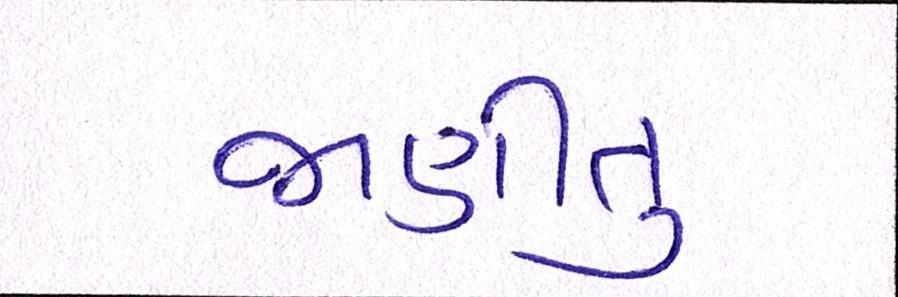 જાણીતુ